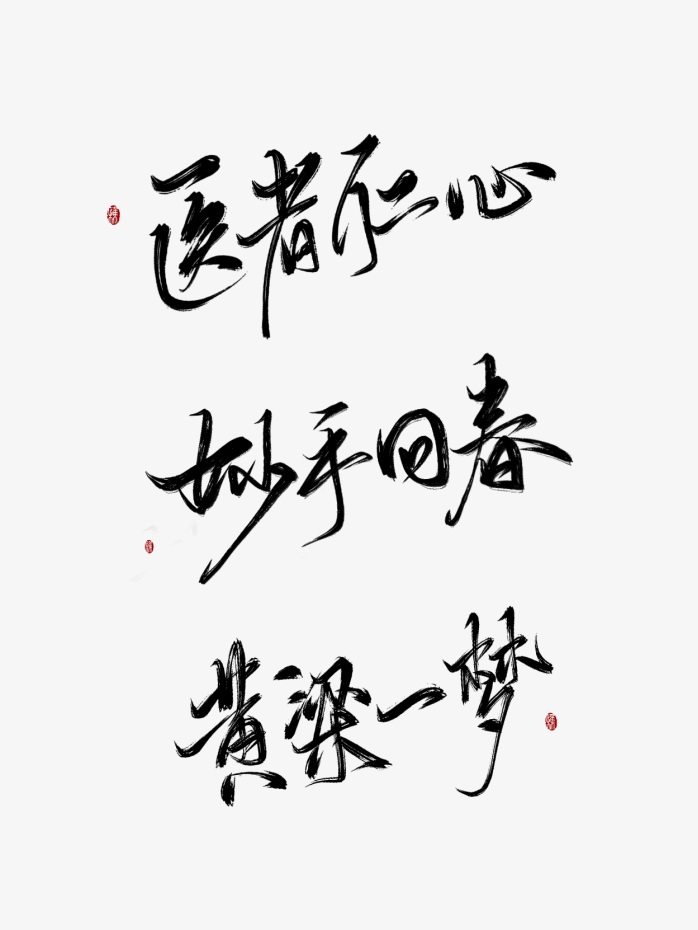 医者仁心
妙手回春
黄梁一梦